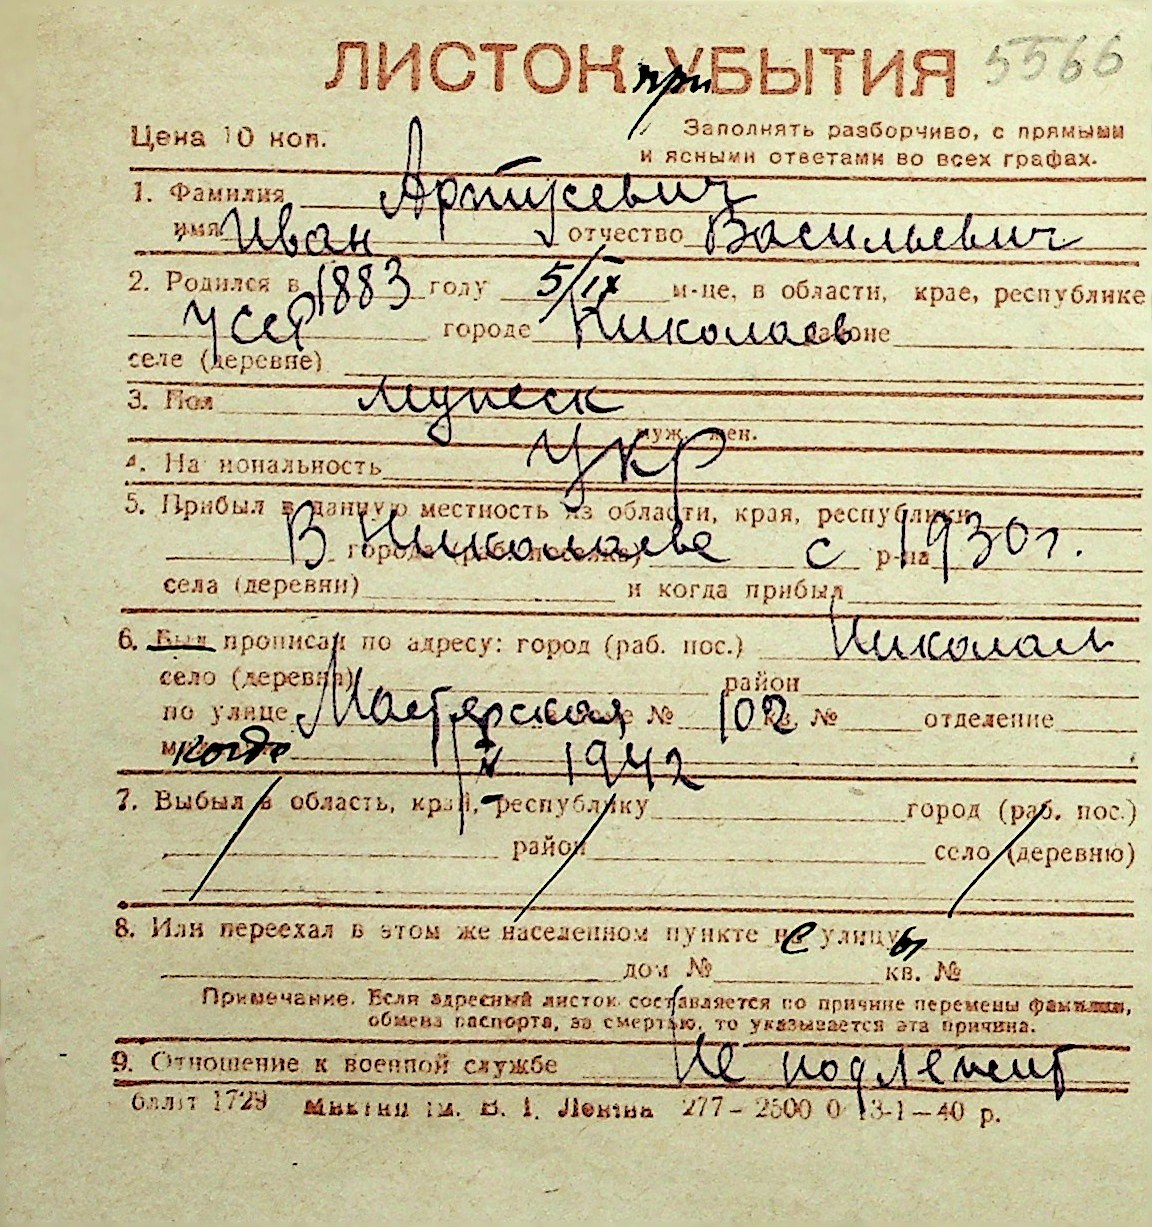 ЛИСТОК при УБЫТИЯ 5566
Цена 10 коп.
Заполнять разборчиво, с прямыми
и ясными ответами во всех графах.
1. Фамилия Артусевич
имя Иван отчество Васильевич
2. Родился в 1883 году 5/IX м-це, в области, крае, республике
УССР городе Николаев районе
селе (деревне)
3. Пол мужеск
муж. жен.
4. Национальность Укр
5. Прибыл в данную местность из области, края, республики
В города (раб. поселка) Николаеве с р-на 1930 г.
села (деревни) и когда прибыл
6. Был прописан по адресу: город (раб. пос.) Николаев
село (деревня) район
по улице Мастерская № 102 кв. № отделение
когда 1/IV 1942
7. Выбыл в область, край, республику город (раб. пос.)
район село (деревню)
8. Или переехал в этом же населенном пункте с улицы
дом № кв. №
Примечание. Если адресный листок составляется по причине перемены фамилии,
обмена паспорта, за смертью, то указывается эта причина.
9. Отношение к военной службе Не подлежит
1729 им. В. І. Леніна 277—2500 0 13-1—40 р.